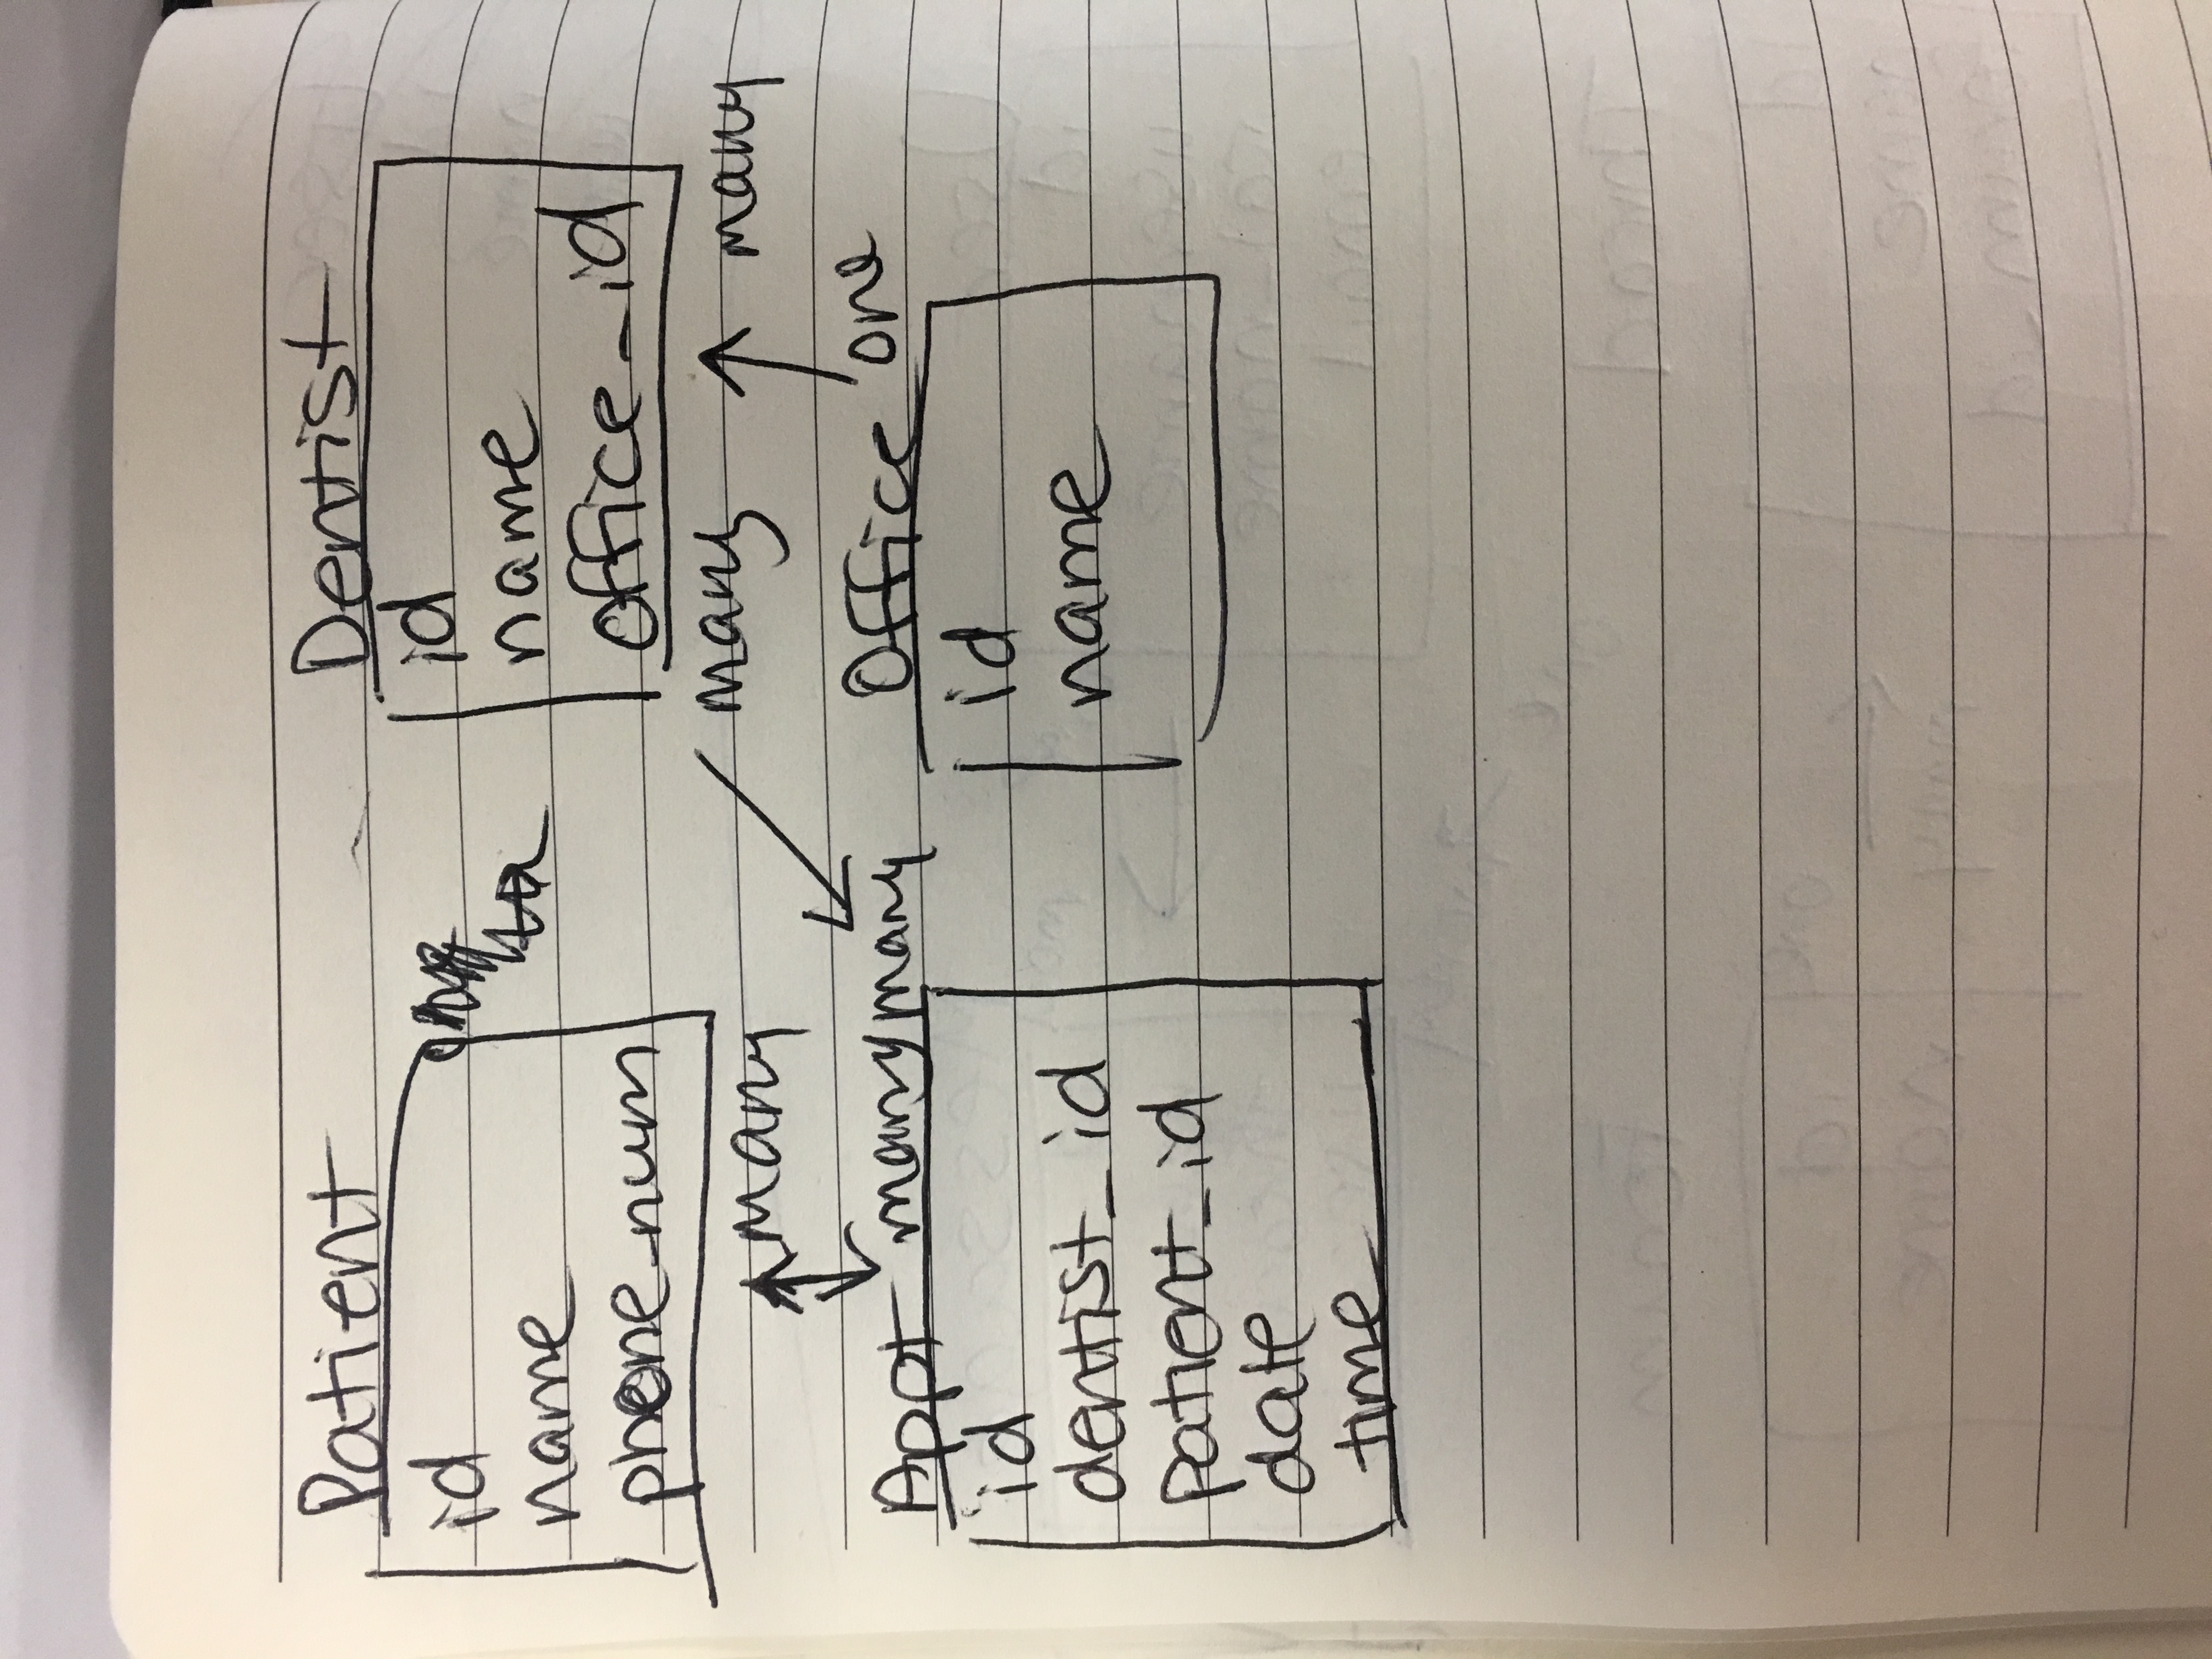 Patient
id
name
phone_num
Dentist
id
name
office_id
many
many
many
Appt many many
id
dentist_id
patient_id
date
time
Office one
id
name